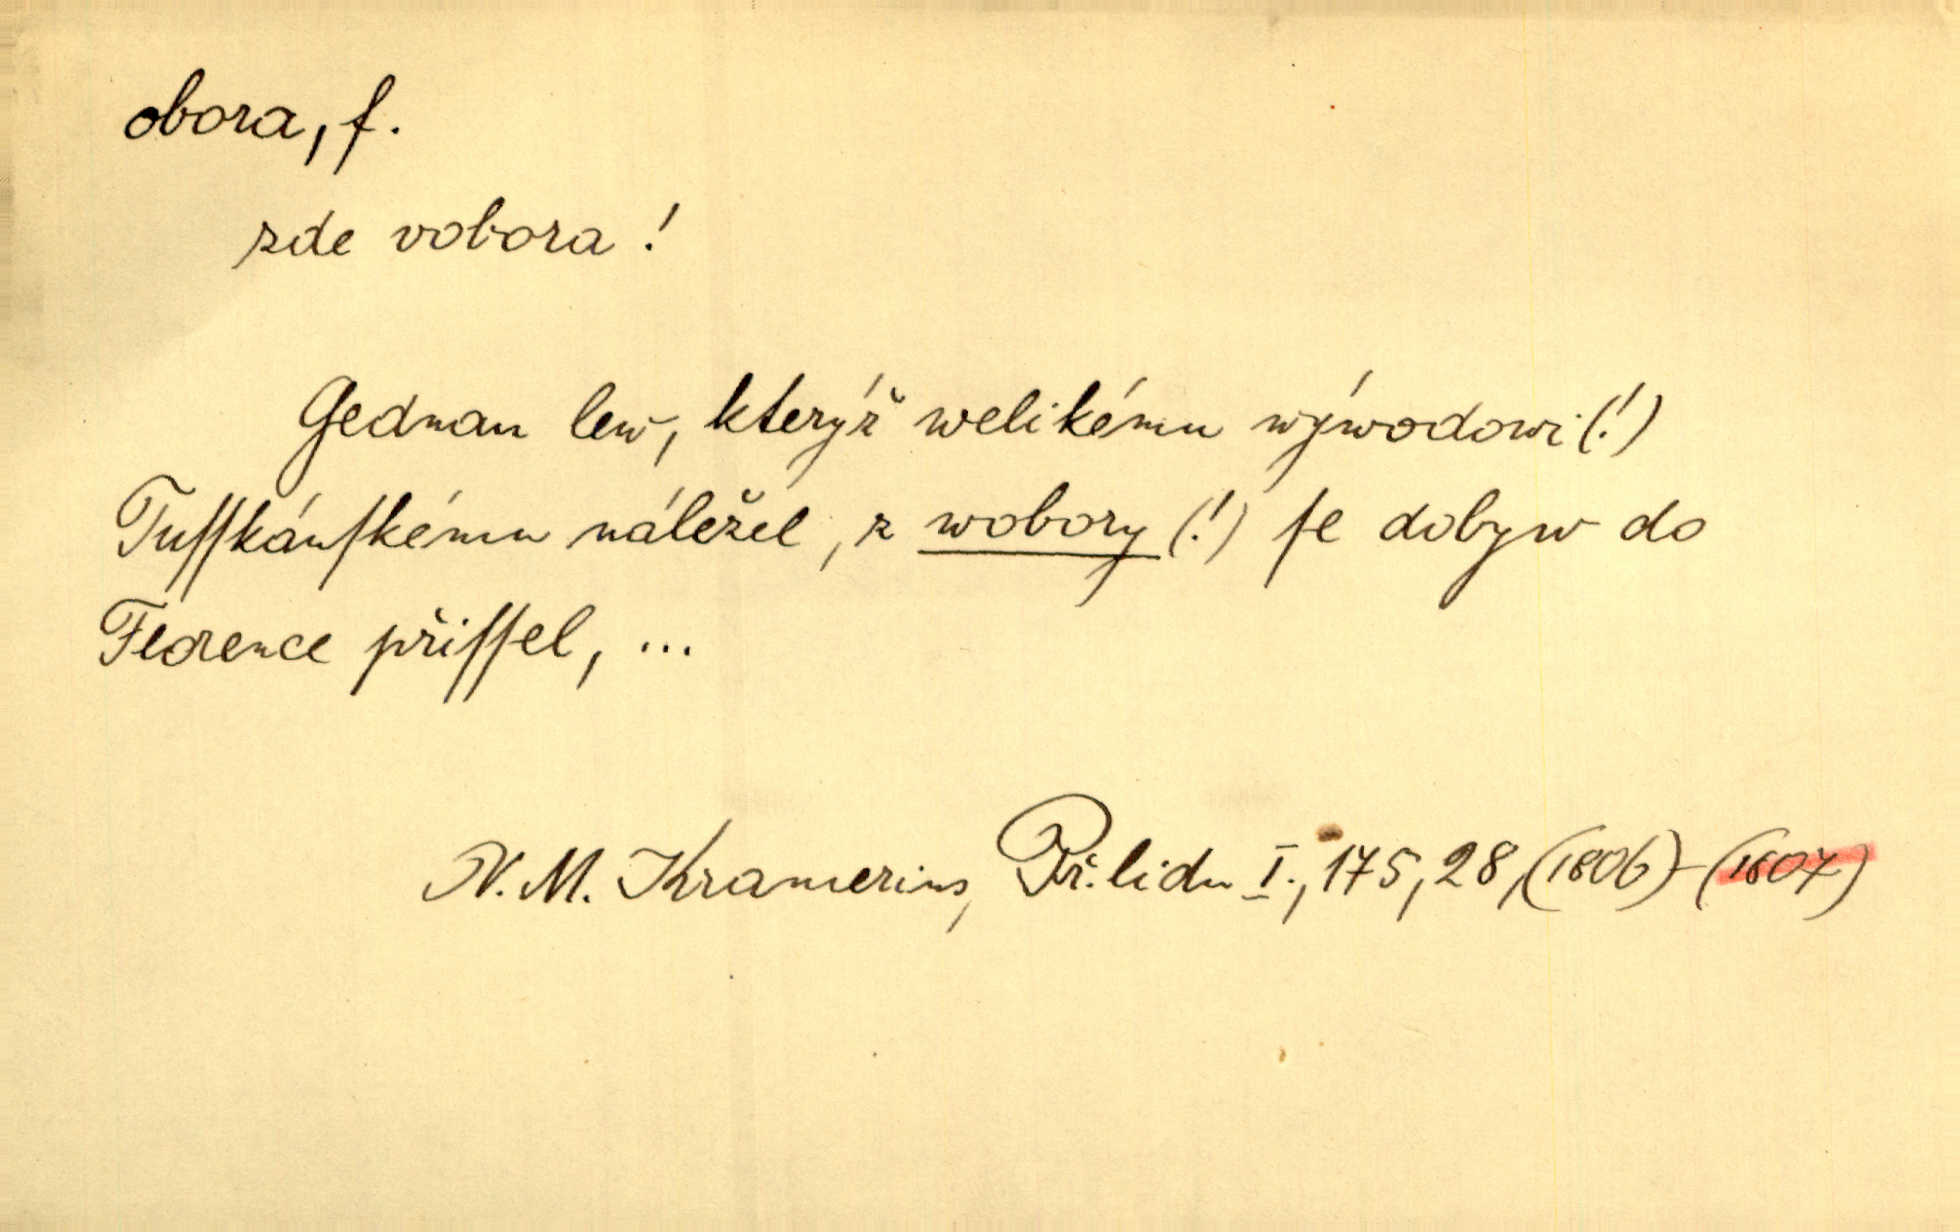 obora, f.
zde vobora!
Gednau lew, kterýž welikému wýwodowi (!)
Tuſſkánſkému náležel, z wobory (!) ſe dobyw do
Florence přiſſel, ...
N. M. Kramerius, Př. lidu I., 175, 28, (1806)-(1807)